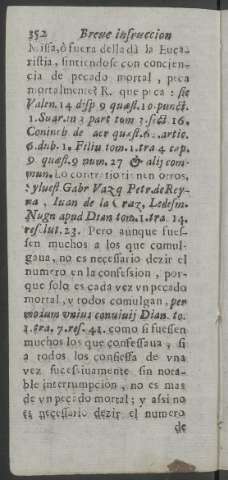 352 Breve instruccion
Missa, ò fuera della dà la Euca-
ristia, sintiendose con concien-
cia de pecado mortal, peca
mortalmente? R. que peca: sic
Valen. 14 disp 9 quæst. 10. punct.
1. Suar. in 3 part tom 3. sect. 16.
Coninch de acr quæst. 6. artic.
6. dub. 1. Filiu tom. 1. tra 4 cap.
9 quæst. 9 num. 27 & alij com-
mun. Lo contrario tienen otros,
: yluest Gabr Vazq Petr de Rey-
na, Iuan de la Craz, Ledesm.
Nugn apud Dian tom. 1. tra. 14.
res. lut. 23. Pero aunque fues-
sen muchos a los que comul-
gaua, no es necessario dezir el
numero en la confession, por-
que solo es cada vez vn pecado
mortal, y todos comulgan, per
modum vnius conuiuij Dian. to.
1. tra. 7. res. 41. como si fuessen
muchos los que confessaua, si
a todos los confiessa de vna
vez sucessiuamente sin nota-
ble interrumpcion, no es mas
de vn pecado mortal; y assi no
es necessario dezir el numero
de